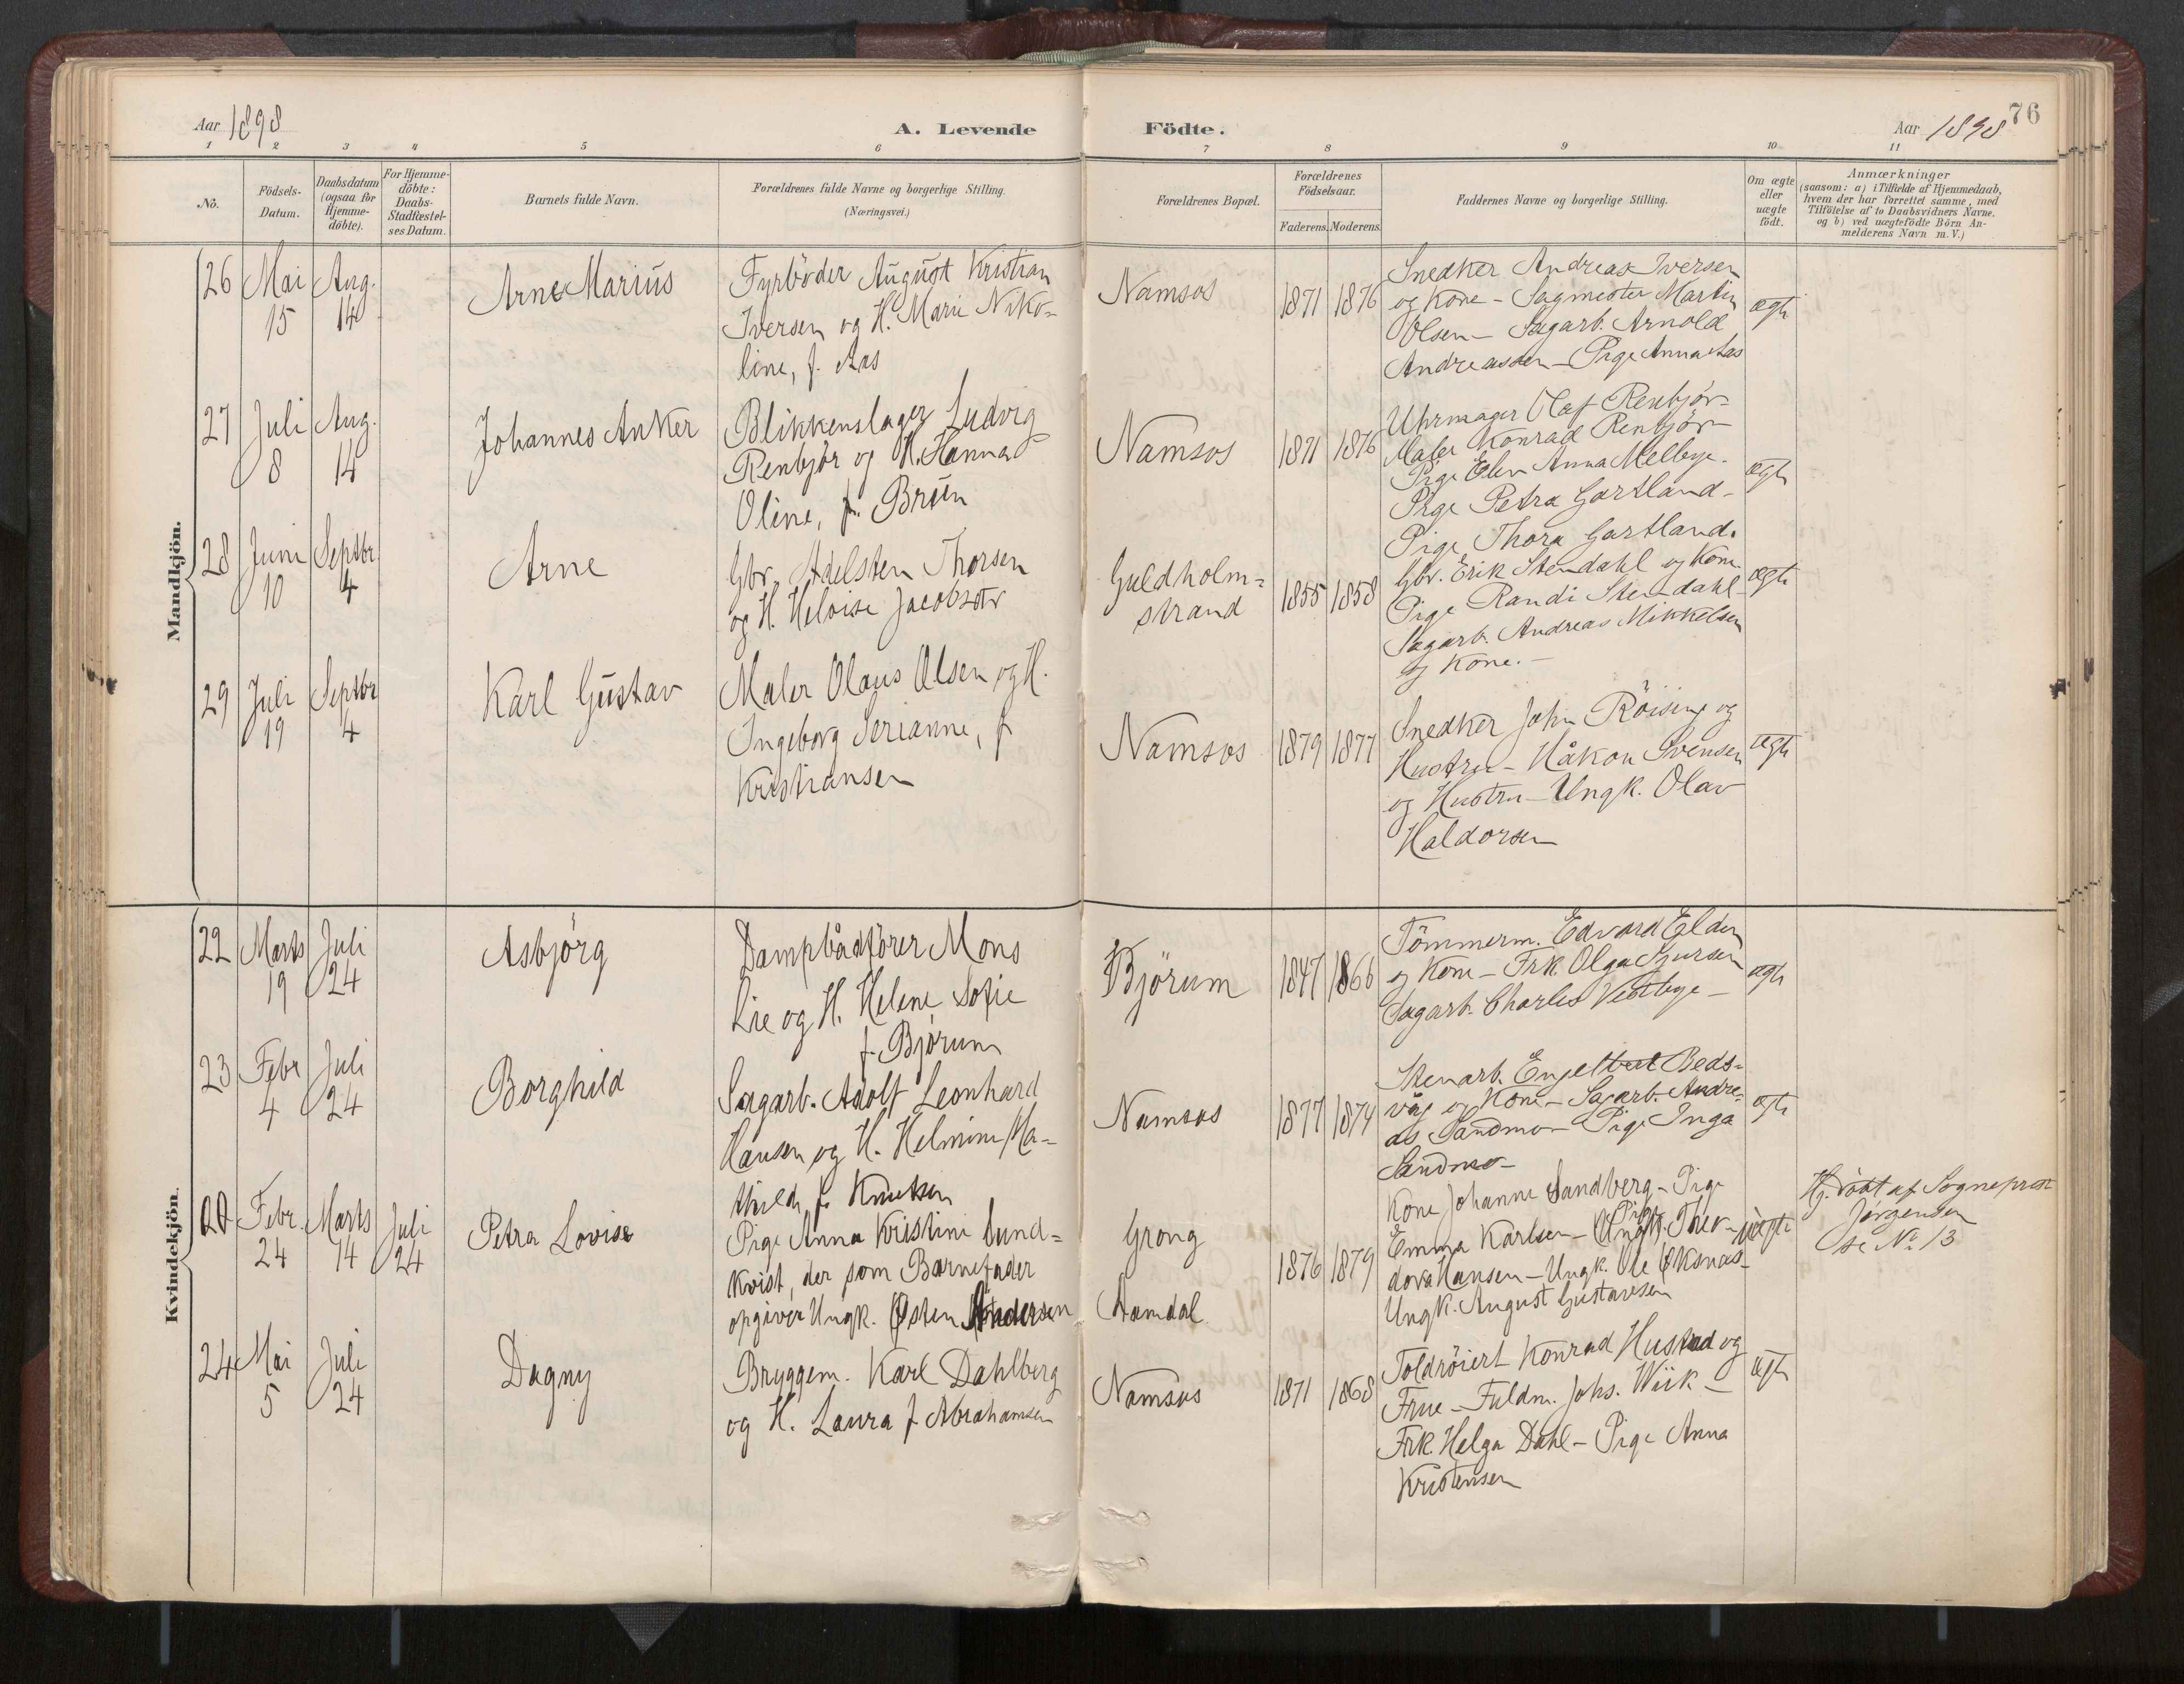 Aar 1898
A. Levende
Födte.
Aar 1898
76
1 2 3 4 5 6 7 8 9 10 11
No.
Födsels-Datum.
Daabsdatum (ogsaa for Hjemme-döbte).
For Hjemme-döbte: Daabs-Stadfæstel-ses Datum.
Barnets fulde Navn.
Forældrenes fulde Navne og borgerlige Stilling.
(Næringsvei.)
Forældrenes Bopæl.
Forældrenes Födselsaar.
Faderens. Moderens.
Faddernes Navne og borgerlige Stilling.
Om ægte eller uægte födt.
Anmærkninger
(saasom: a) i Tilfælde af Hjemmedaab,
hvem der har forrettet samme, med
Tilföielse af to Daabsvidners Navne.
og b) ved uægtefödte Börn An-
melderens Navn m.V.)
Mandkjön.
26 Mai 15 Aug. 14 Arne Marius
Fyrböder August Kristian
Iversen og H. Marie Niko-
line, f. Aas
Namsos 1871 1876
Snedker Andreas Iversen
og Kone - Sagmester Martin
Olsen - Sagarb. Arnold
Andreassen - Pige Anna Aas
ægte
27 Juli 8 Aug. 14 Johannes Anker
Blikkenslager Ludvig
Renbjör og H. Hanna
Oline, f. Brün
Namsos 1871 1876
Uhrmager Olaf Renbjör-
Maler Konrad Renbjör-
Pige Elen Anna Melbye.
Pige Petra Gartland-
Pige Thora Gartland.
ægte
28 Juni 10 Septbr 4 Arne
Gbr. Adelsten Thorsen
og H. Heloise Jacobsdtr
Guldholm=
strand
1855 1858
Gbr. Erik Stendahl og Kone
Pige Randi Stendahl-
Sagarb. Andreas Mikkelsen
og Kone.-
ægte
29 Juli 19 Septbr 4 Karl Gustav
Maler Olaus Olsen og H.
Ingeborg Serianne, f
Kristiansen
Namsos 1879 1877
Snedker John Röising og
Hustru - Håkon Svensen
og Hustru - Ungk. Olav
Haldorsen
ægte
Kvindekjön.
22 Marts 19 Juli 24 Asbjörg
Dampbådförer Mons
Lie og H. Helene Sofie
f. Björum
Björum 1847 1866
Tömmerm. Edvard Elden
og Kone - Frk. Olga Sjursen
Sagarb. Charles Vestbye-
ægte
23 Febr 4 Juli 24 Borghild
Sagarb. Adolf Leonhard
Hansen og H. Helmine Ma-
thilde f. Knutsen
Namsos 1877 1874
Stenarb. Engelbert Beds-
våg og Kone - Sagarb. Andre-
as Sandmo - Pige Inga
Sandmo-
ægte
Febr. 24 Marts 14 Juli 24 Petra Lovise
Pige Anna Kristine Lund=
kvist, der som Barnefader
opgiver Ungk. Østen Andersen
Grong
Aamdal
1876 1879
Kone Johanne Sandberg - Pige
Emma Karlsen - Pige Theo-
dora Hansen - Ungk. Ole Øksnas-
Ungk. August Gustavsen
uægte
Hj. döbt af Sogneprest
Jørgensen
se No 13
24 Mai 5 Juli 24 Dagny
Bryggem. Karl Dahlberg
og H. Laura f Abrahamsen
Namsos 1871 1868
Toldröiert Konrad Hustad og
Frue - Fuldm. Johs. Wiik-
Frk Helga Dahl - Pige Anna
Kristensen
ægte